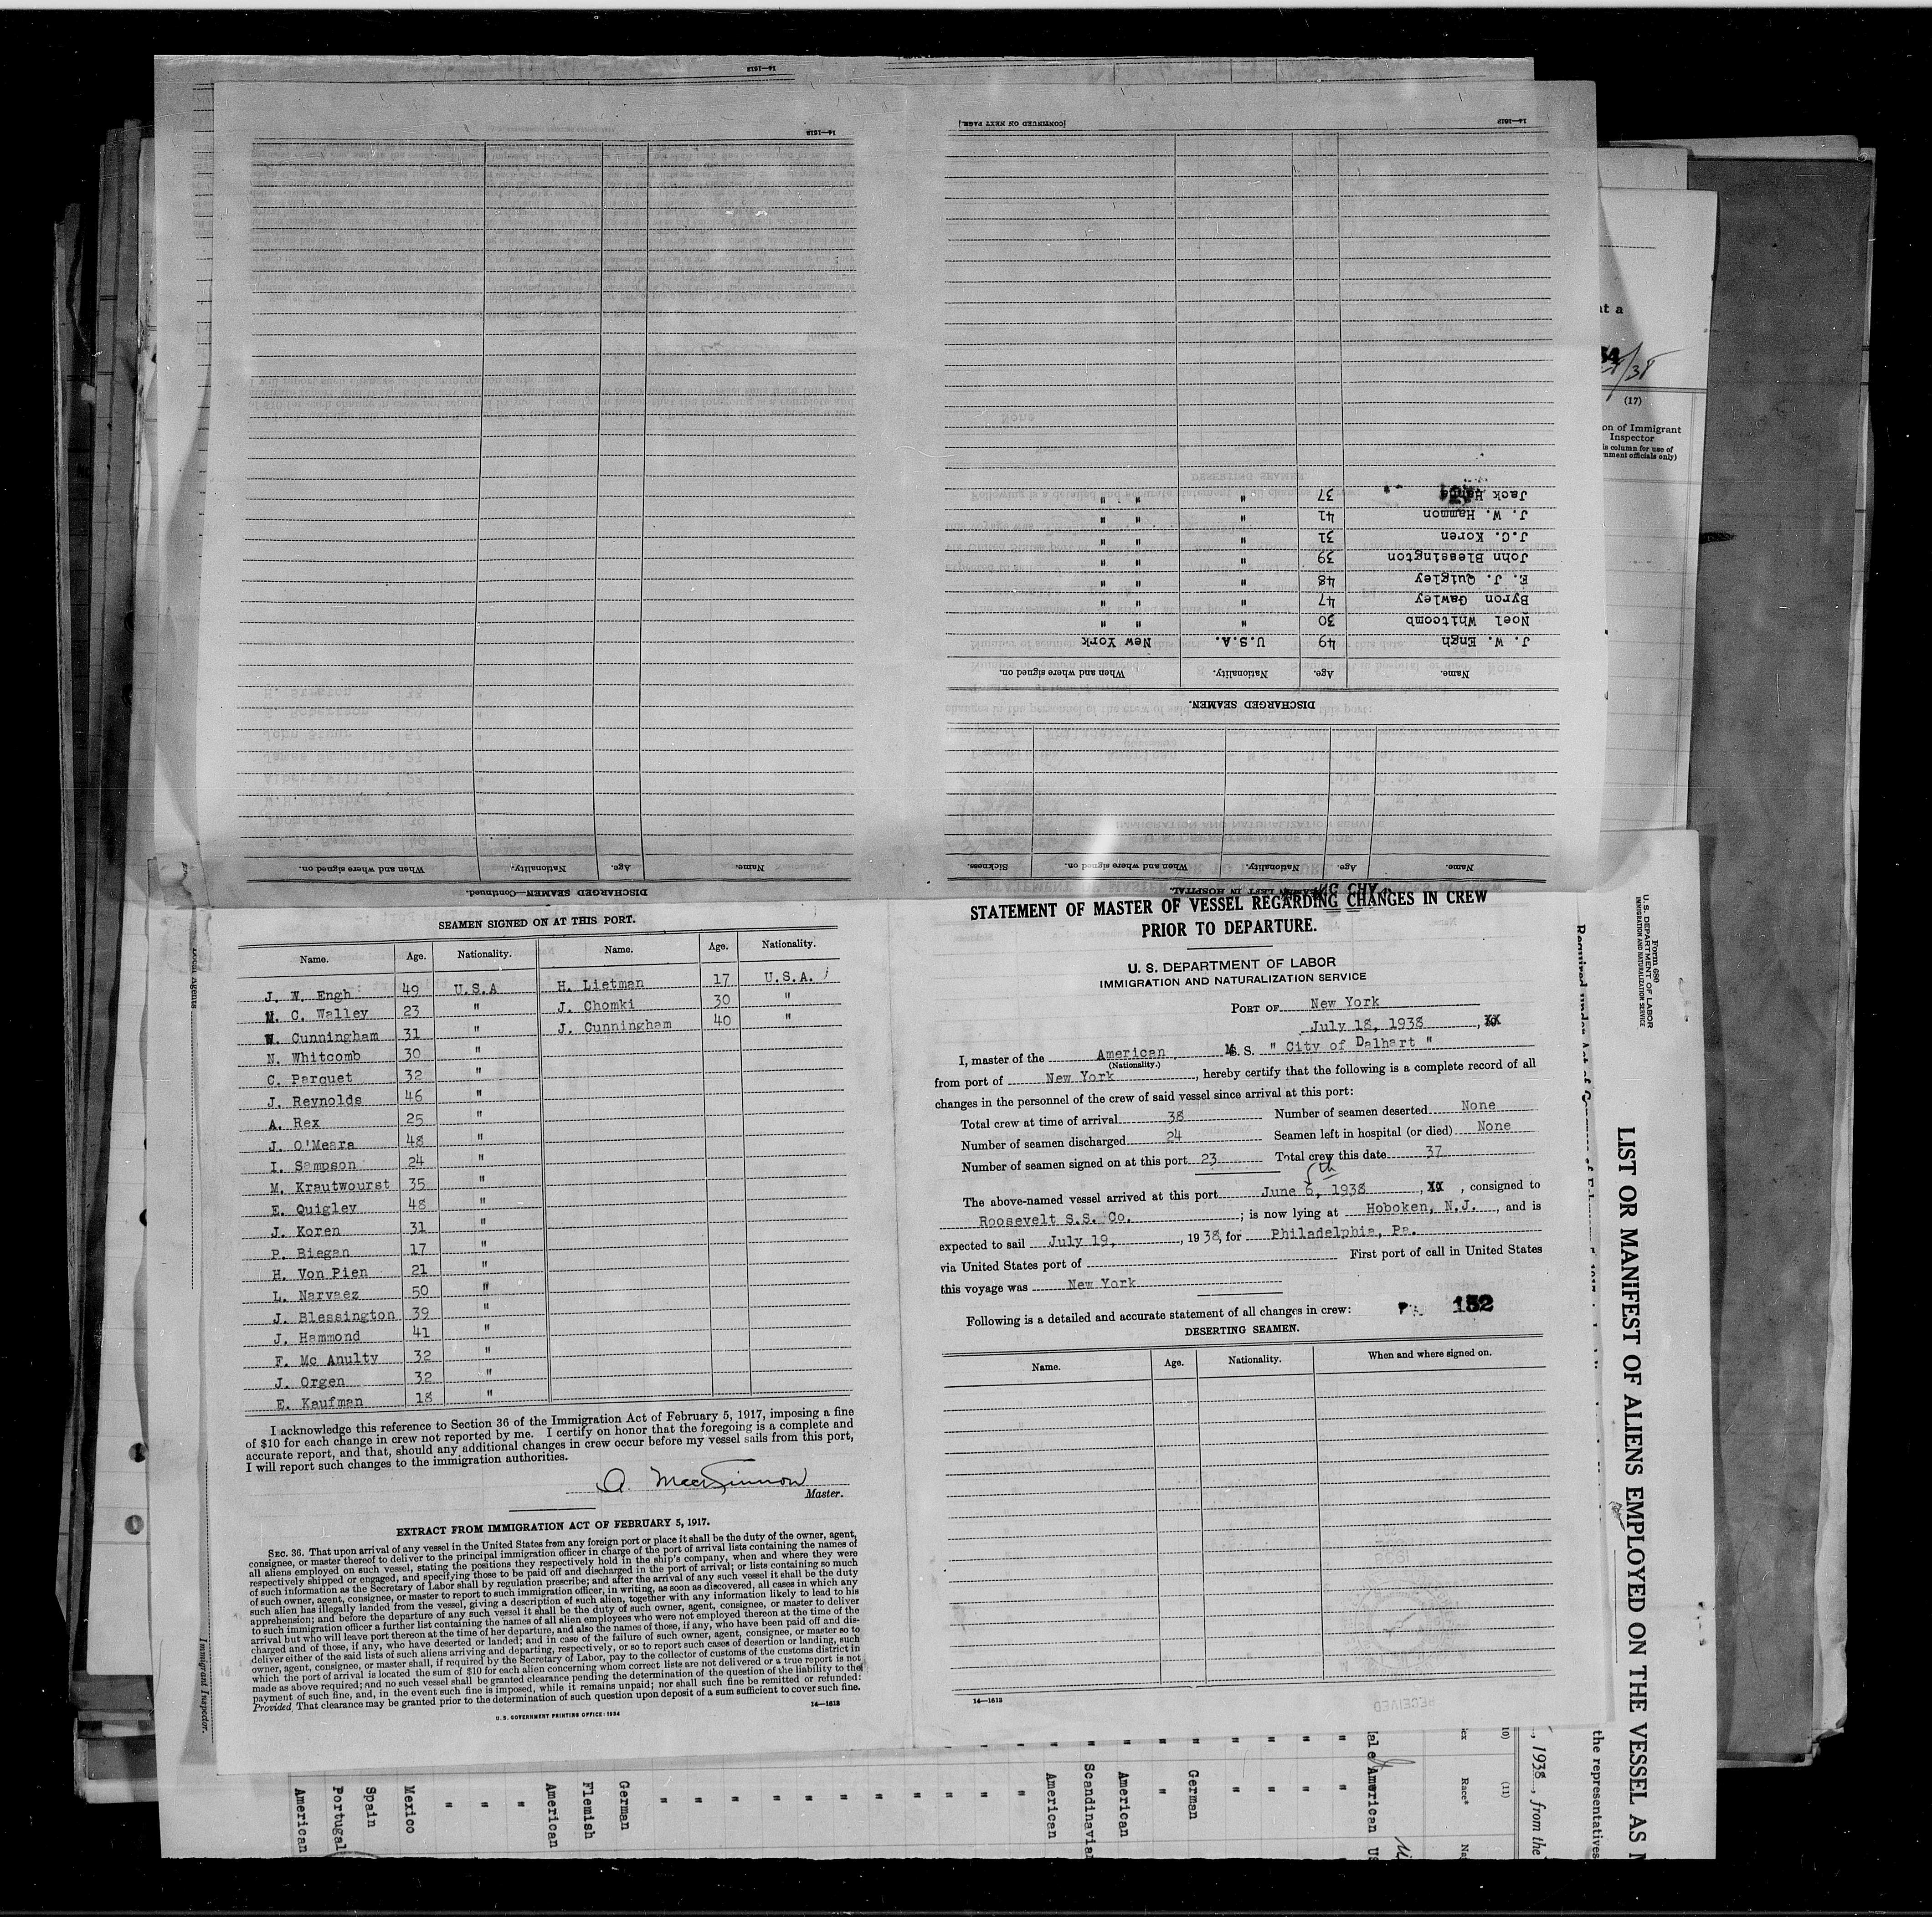 14—1613
14—1613
[CONTINUED ON NEXT PAGE.]
14—1613
Jack
37
"
" "
J. W. Hammon
41
"
" "
J.C. Koren
31
"
" "
John Blessington
39
"
" "
E. J. Quigley
48
"
" "
Byron Gawley
47
"
" "
Noel Whitcomb
30
"
" "
J. W. Engh
49
U.S.A.
New York
Name.
Age.
Nationality.
When and where signed on.
DISCHARGED SEAMEN.
Name.
Age.
Nationality.
When and where signed on.
Sickness.
SEAMEN LEFT IN HOSPITAL.
Name.
Age.
Nationality.
When and where signed on.
DISCHARGED SEAMEN—Continued.
SEAMEN SIGNED ON AT THIS PORT.
Name. Age. Nationality. Name. Age. Nationality.
J. W. Engh 49 U.S.A H. Lietman 17 U.S.A.
M. C. Walley 23 " J. Chomki 30 "
W. Cunningham 31 " J. Cunningham 40 "
N. Whitcomb 30 "
C. Parquet 32 "
J. Reynolds 46 "
A. Rex 25 "
J. O'Meara 48 "
I. Sampson 24 "
M. Krautwourst 35 "
E. Quigley 48 "
J. Koren 31 "
P. Biegan 17 "
H. Von Pien 21 "
L. Narvaez 50 "
J. Blessington 39 "
J. Hammond 41 "
F. Mc Anulty 32 "
J. Orgen 32 "
E. Kaufman 18 "
I acknowledge this reference to Section 36 of the Immigration Act of February 5, 1917, imposing a fine
of $10 for each change in crew not reported by me. I certify on honor that the foregoing is a complete and
accurate report, and that, should any additional changes in crew occur before my vessel sails from this port,
I will report such changes to the immigration authorities.
A. MacKinnon
Master.
EXTRACT FROM IMMIGRATION ACT OF FEBRUARY 5, 1917.
SEC. 36. That upon arrival of any vessel in the United States from any foreign port or place it shall be the duty of the owner, agent,
consignee, or master thereof to deliver to the principal immigration officer in charge of the port of arrival lists containing the names of
all aliens employed on such vessel, stating the positions they respectively hold in the ship's company, when and where they were
respectively shipped or engaged, and specifying those to be paid off and discharged in the port of arrival; or lists containing so much
of such information as the Secretary of Labor shall by regulation prescribe; and after the arrival of any such vessel it shall be the duty
of such owner, agent, consignee, or master to report to such immigration officer, in writing, as soon as discovered, all cases in which any
such alien has illegally landed from the vessel, giving a description of such alien, together with any information likely to lead to his
apprehension; and before the departure of any such vessel it shall be the duty of such owner, agent, consignee, or master to deliver
to such immigration officer a further list containing the names of all alien employees who were not employed thereon at the time of the
arrival but who will leave port thereon at the time of her departure, and also the names of those, if any, who have been paid off and dis-
charged and of those, if any, who have deserted or landed; and in case of the failure of such owner, agent, consignee, or master so to
deliver either of the said lists of such aliens arriving and departing, respectively, or so to report such cases of desertion or landing, such
owner, agent, consignee, or master shall, if required by the Secretary of Labor, pay to the collector of customs of the customs district in
which the port of arrival is located the sum of $10 for each alien concerning whom correct lists are not delivered or a true report is not
made as above required; and no such vessel shall be granted clearance pending the determination of the question of the liability to the
payment of such fine, and, in the event such fine is imposed, while it remains unpaid; nor shall such fine be remitted or refunded:
Provided, That clearance may be granted prior to the determination of such question upon deposit of a sum sufficient to cover such fine.
14—1613
U. S. GOVERNMENT PRINTING OFFICE: 1934
STATEMENT OF MASTER OF VESSEL REGARDING CHANGES IN CREW
PRIOR TO DEPARTURE.
U. S. DEPARTMENT OF LABOR
IMMIGRATION AND NATURALIZATION SERVICE
PORT OF New York
July 18, 1938, XX
I, master of the American M.S. " City of Dalhart "
(Nationality.)
from port of New York, hereby certify that the following is a complete record of all
changes in the personnel of the crew of said vessel since arrival at this port:
Total crew at time of arrival 38 Number of seamen deserted None
Number of seamen discharged 24 Seamen left in hospital (or died) None
Number of seamen signed on at this port 23 Total crew this date 37
5th
The above-named vessel arrived at this port June 6, 1938, XX, consigned to
Roosevelt S.S. Co. ; is now lying at Hoboken, N.J., and is
expected to sail July 19, 1938, for Philadelphia, Pa.
via United States port of First port of call in United States
this voyage was New York
Following is a detailed and accurate statement of all changes in crew:
152
DESERTING SEAMEN.
Name. Age. Nationality. When and where signed on.
14—1613
(17)
on of Immigrant
Inspector
is column for use of
rnment officials only)
Form 680
U. S. DEPARTMENT OF LABOR
IMMIGRATION AND NATURALIZATION SERVICE
LIST OR MANIFEST OF ALIENS EMPLOYED ON THE VESSEL AS
the representatives
, 1938, from the
(11)
Race*
American
German
"
American
Scandinavia
American
German
Flemish
American
Mexico
Spain
Portugal
American
Immigrant Inspector.